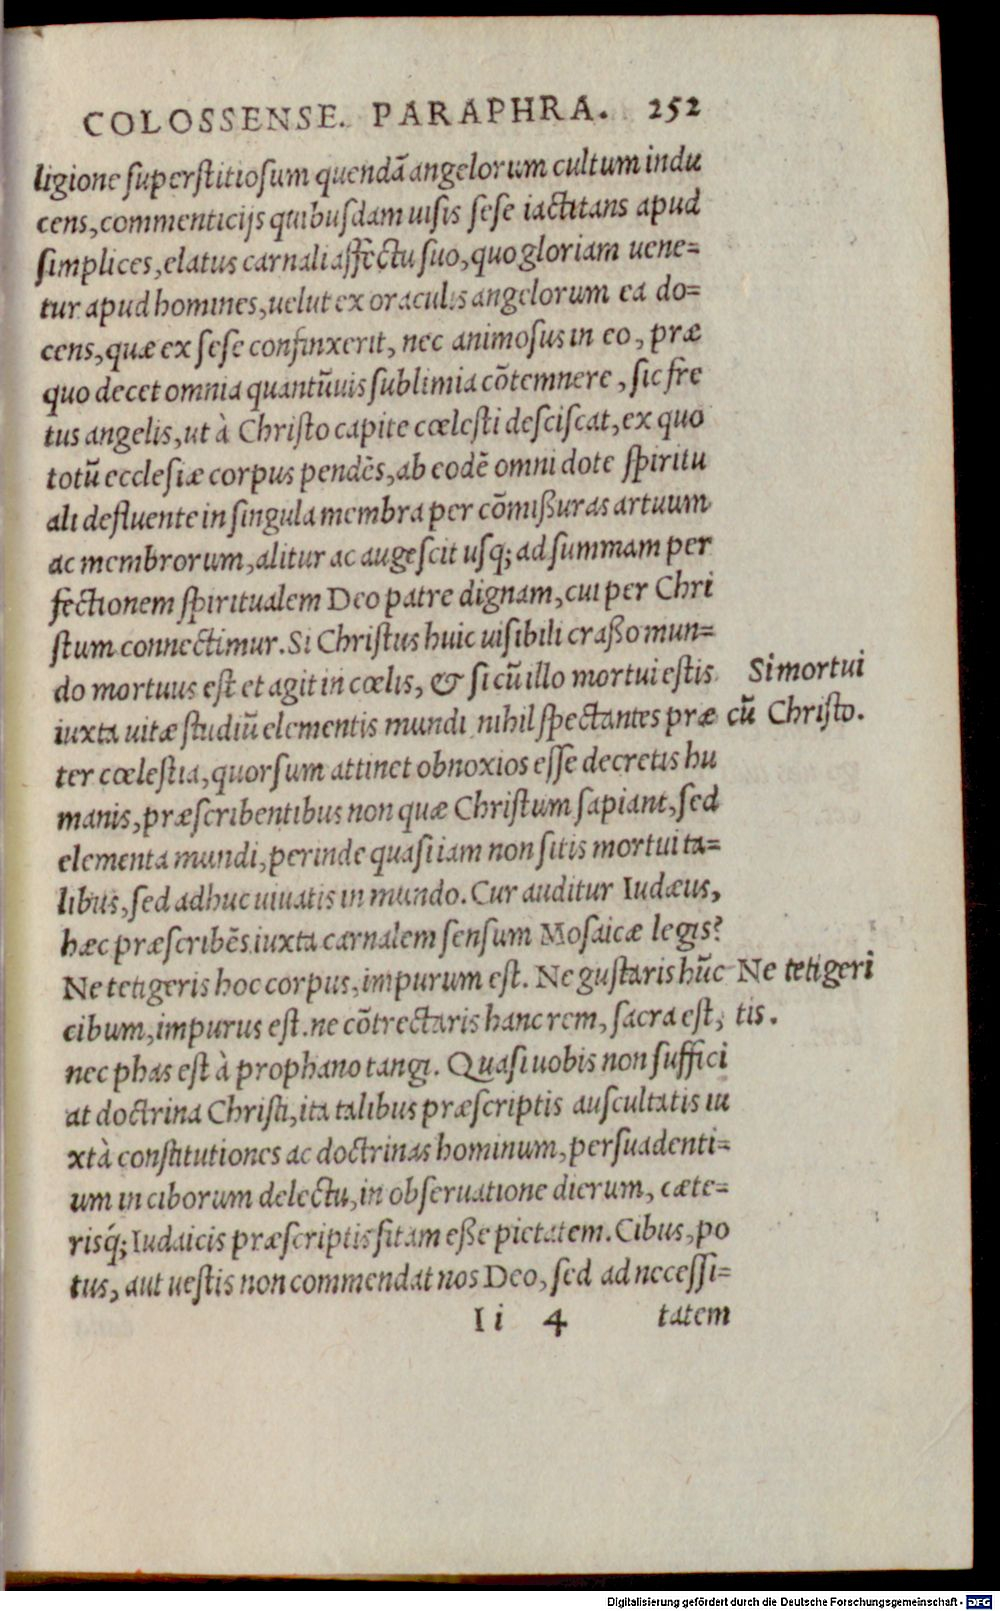 COLOSSENSE. PARAPHRA. 252
ligione superstitiosum quendã angelorum cultum indu
cens, commenticijs quibusdam uisis sese iactitans apud
simplices, elatus carnali affectu suo, quo gloriam uene=
tur apud homines, uelut ex oraculis angelorum ea do=
cens, quæ ex sese confinxerit, nec animosus in eo, præ
quo decet omnia quantũuis sublimia cõtemnere, sic fre
tus angelis, ut à Christo capite cœlesti desciscat, ex quo
totũ ecclesiæ corpus pendẽs, ab eodẽ omni dote spiritu
ali defluente in singula membra per cõmißuras artuum
ac membrorum, alitur ac augescit usq; ad summam per
fectionem spiritualem Deo patre dignam, cui per Chri
stum connectimur. Si Christus huic uisibili craßo mun=
do mortuus est et agit in cœlis, & si cũ illo mortui estis
Si mortui
iuxta uitæ studiũ elementis mundi nihil spectantes præ
cũ Christo.
ter cœlestia, quorsum attinet obnoxios esse decretis hu
manis, præscribentibus non quæ Christum sapiant, sed
elementa mundi, perinde quasi iam non sitis mortui ta=
libus, sed adhuc uiuatis in mundo. Cur auditur Iudæus,
hæc præscribẽs iuxta carnalem sensum Mosaicæ legis?
Ne tetigeris hoc corpus, impurum est. Ne gustaris hũc
Ne tetigeri
cibum, impurus est. ne cõtrectaris hanc rem, sacra est,
tis.
nec phas est à prophano tangi. Quasi uobis non suffici
at doctrina Christi, ita talibus præscriptis auscultatis iu
xtà constitutiones ac doctrinas hominum, persuadenti=
um in ciborum delectu, in obseruatione dierum, cæte=
risq́; Iudaicis præscriptis sitam eße pietatem. Cibus, po
tus, aut uestis non commendat nos Deo, sed ad necessi=
Ii 4 tatem
Digitalisierung gefördert durch die Deutsche Forschungsgemeinschaft - DFG